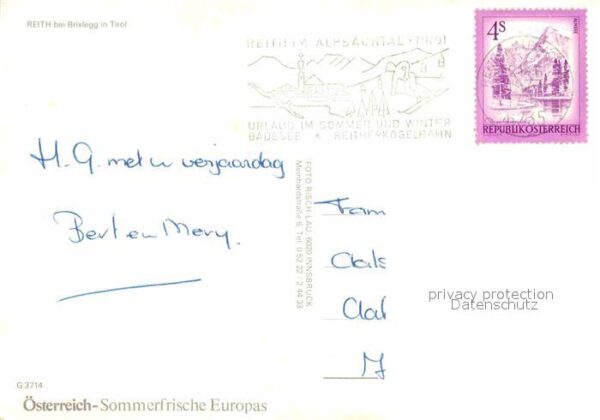 REITH bei Brixlegg in Tirol
REITH IM ALPBACHTAL · TIROL
URLAUB IM SOMMER UND WINTER
BADESEE * REITHERKOGELBAHN
4S
REPUBLIK ÖSTERREICH
6235
H. G. met u verjaardag
Bert en Mery.
FOTO RISCH-LAU, 6020 INNSBRUCK
Meinhardstraße 6, Tel. 0 52 22 2 44 33
Fam
privacy protection
Datenschutz
G 3714
Österreich-Sommerfrische Europas